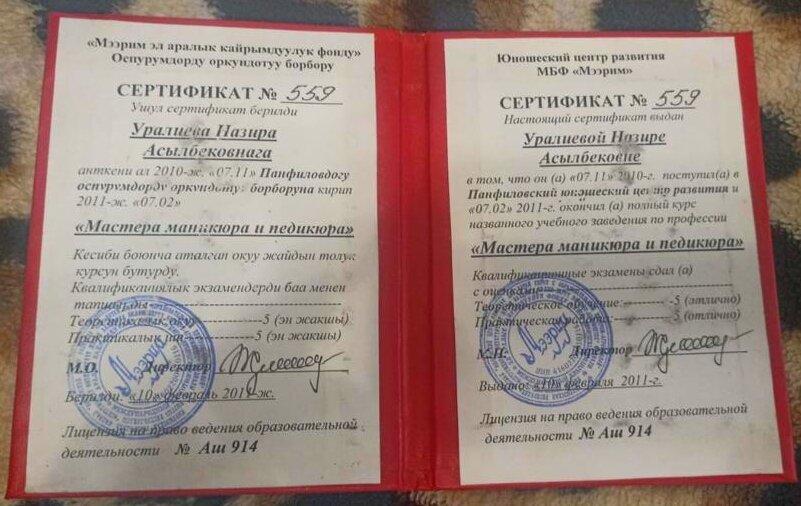 «Мээрим эл аралык кайрымдуулук фонду»
Оспурумдорду оркундотуу борбору
СЕРТИФИКАТ № 559
Ушул сертификат берилди
Уралиева Назира
Асылбековнага
анткени ал 2010-ж. «07.11» Панфиловдогу
оспурумдорду оркундотуу борборуна кирип
2011-ж. «07.02»
«Мастера маникюра и педикюра»
Кесиби боюнча аталган окуу жайдын толук
курсун бутурду.
Квалификациялык экзамендерди баа менен
тапшырды
Теориялык окуу 5 (эн жакшы)
Практикалык иш 5 (эн жакшы)
М.О. Директор
Берилди: «10» февраль 2011-ж.
Лицензия на право ведения образовательной
деятельности № Аш 914
Юношеский центр развития
МБФ «Мээрим»
СЕРТИФИКАТ № 559
Настоящий сертификат выдан
Уралиевой Назире
Асылбековне
в том, что он (а) «07.11» 2010-г. поступил(а) в
Панфиловский юношеский центр развития и
«07.02» 2011-г. окончил (а) полный курс
названного учебного заведения по профессии
«Мастера маникюра и педикюра»
Квалификационные экзамены сдал (а)
с оценками
Теоретическое обучение: 5 (отлично)
Практическая работа: 5 (отлично)
М.П. Директор
Выдано: «10» февраля 2011-г.
Лицензия на право ведения образовательной
деятельности № Аш 914